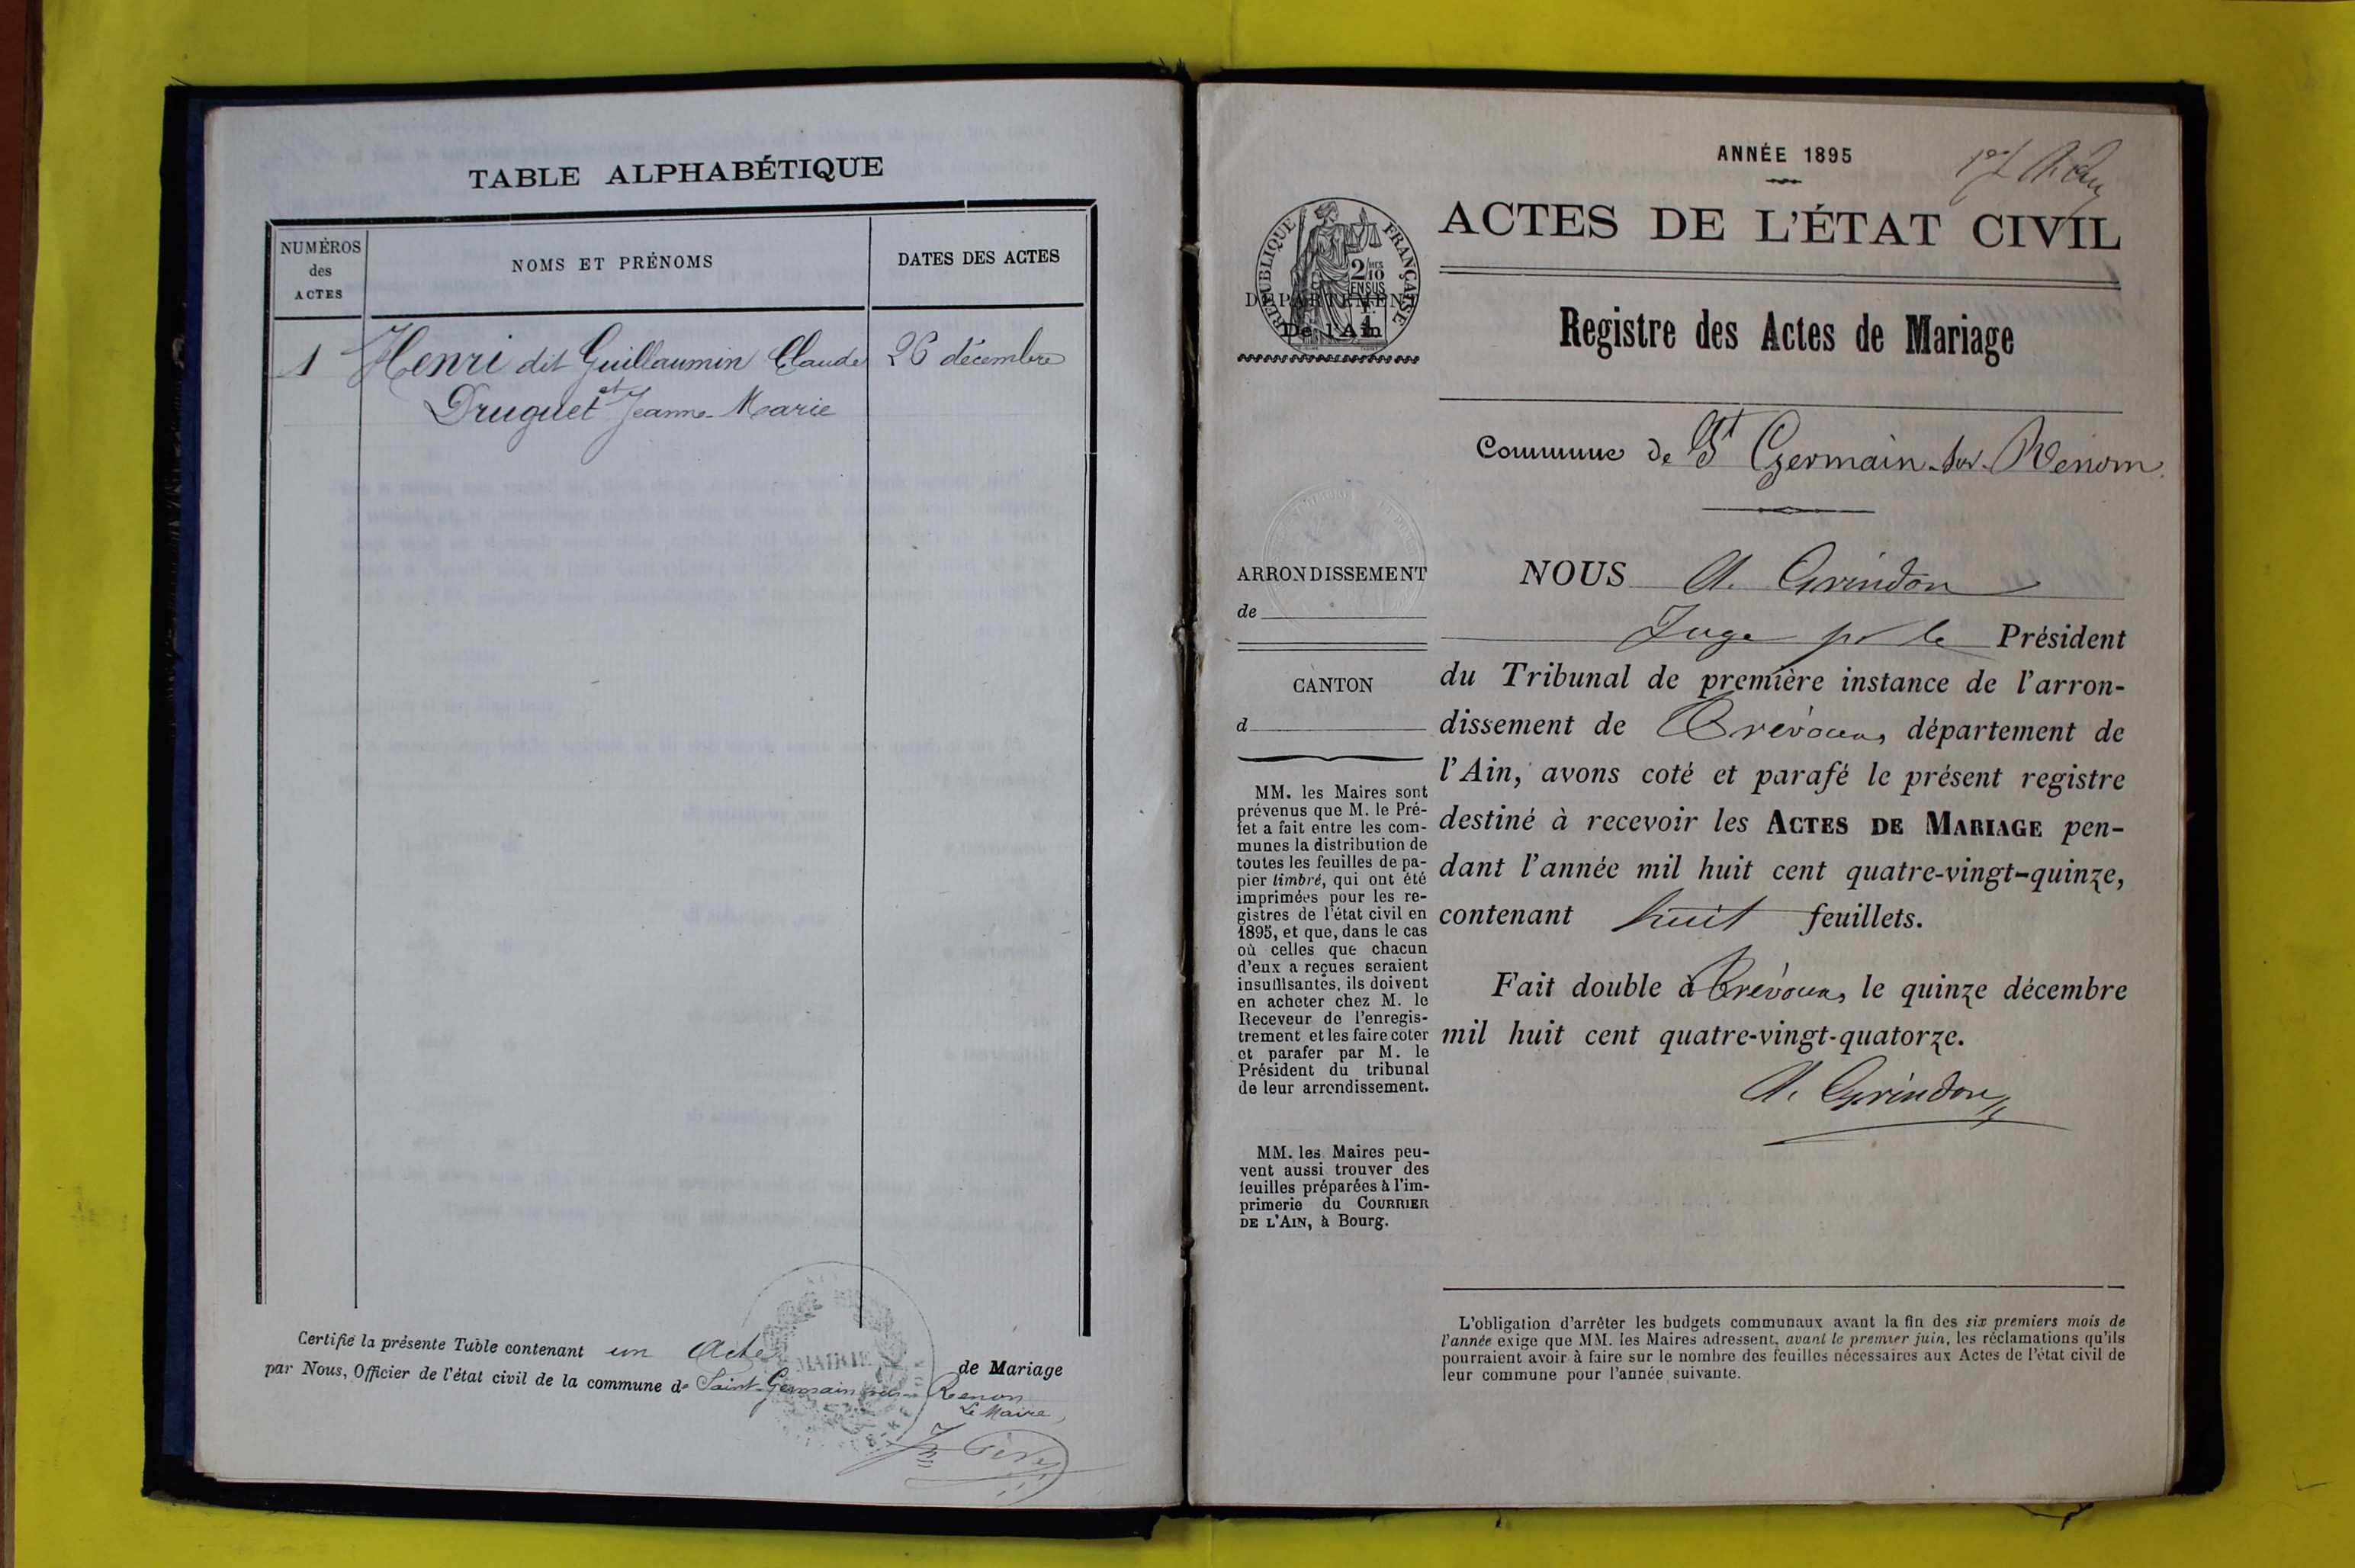 TABLE ALPHABÉTIQUE
NUMÉROS
des
ACTES
NOMS ET PRÉNOMS
DATES DES ACTES
1 Henri dit Guillaumin Claude 26 décembre
et
Druguet Jeanne-Marie
Certifié la présente Table contenant un Acte de Mariage
MAIRIE
par Nous, Officier de l'état civil de la commune de Saint-Germain sur Renon
Le Maire,
ANNÉE 1895
ACTES DE L'ÉTAT CIVIL
RÉPUBLIQUE FRANÇAISE
2/10
EN SUS
DÉPARTEMENT
De l'Ain
Registre des Actes de Mariage
Commune de St Germain-sur-Renom
ARRONDISSEMENT
de
CANTON
d
MM. les Maires sont
prévenus que M. le Pré-
fet a fait entre les com-
munes la distribution de
toutes les feuilles de pa-
pier timbré, qui ont été
imprimées pour les re-
gistres de l'état civil en
1895, et que, dans le cas
où celles que chacun
d'eux a reçues seraient
insuffisantes, ils doivent
en acheter chez M. le
Receveur de l'enregis-
trement et les faire coter
et parafer par M. le
Président du tribunal
de leur arrondissement.
MM. les Maires peu-
vent aussi trouver des
feuilles préparées à l'im-
primerie du COURRIER
DE L'AIN, à Bourg.
NOUS A. Grindon
Juge pr le Président
du Tribunal de première instance de l'arron-
dissement de Trévoux, département de
l'Ain, avons coté et parafé le présent registre
destiné à recevoir les ACTES DE MARIAGE pen-
dant l'année mil huit cent quatre-vingt-quinze,
contenant huit feuillets.
Fait double à Trévoux, le quinze décembre
mil huit cent quatre-vingt-quatorze.
A. Grindon
L'obligation d'arrêter les budgets communaux avant la fin des six premiers mois de
l'année exige que MM. les Maires adressent, avant le premier juin, les réclamations qu'ils
pourraient avoir à faire sur le nombre des feuilles nécessaires aux Actes de l'état civil de
leur commune pour l'année suivante.